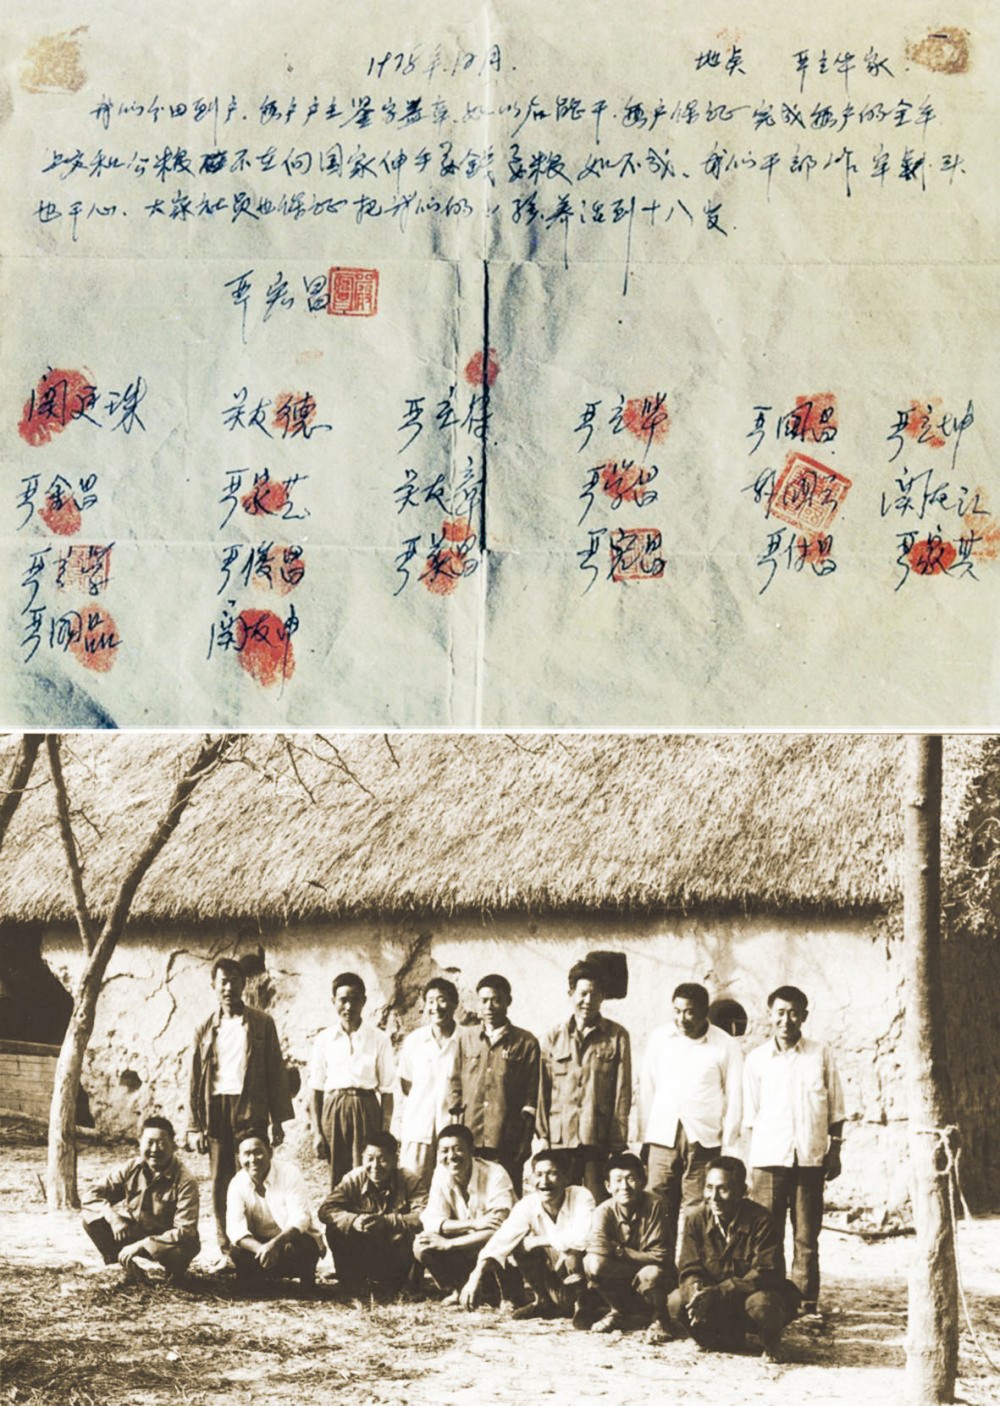 1978年.12月. 地点 严立华家.
我们分田到户.每户户主签字盖章.如以后能干.每户保证完成每户的全年
上交和公粮不在向国家伸手要钱要粮如不成.我们干部作牢刹头
也干心.大家社员也保证把我们的小孩养活到十八岁.
严宏昌
関廷珠 关友德 严立符 严立华 严国昌 严立坤
严金昌 严家芝 关友章 严学昌 韩国云 関友江
严立学 严俊昌 严美昌 严宏昌 严付昌 严家其
严国品 関友申